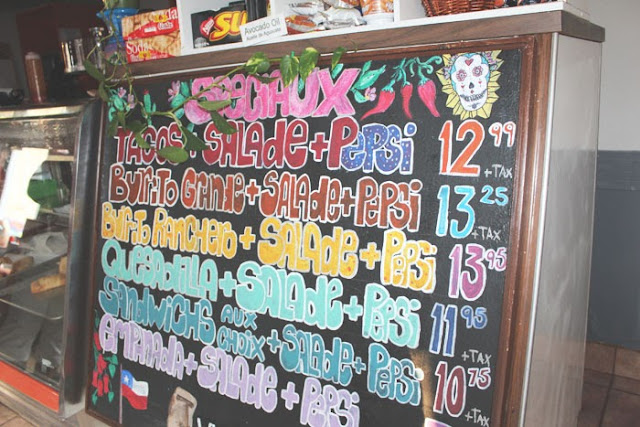 Avocado Oil
Aceite de Aguacate
Soda
SPECIAUX
TACOS + SALADE + PEPSI 12.99 +TAX
BURRITO GRANDE + SALADE + PEPSI 13.25 +TAX
BURRITO RANCHERO + SALADE + PEPSI 13.95
QUESADILLA + SALADE + PEPSI 11.95 +TAX
SANDWICHS AUX CHOIX + SALADE + PEPSI 10.75 +TAX
EMPANADA + SALADE + PEPSI